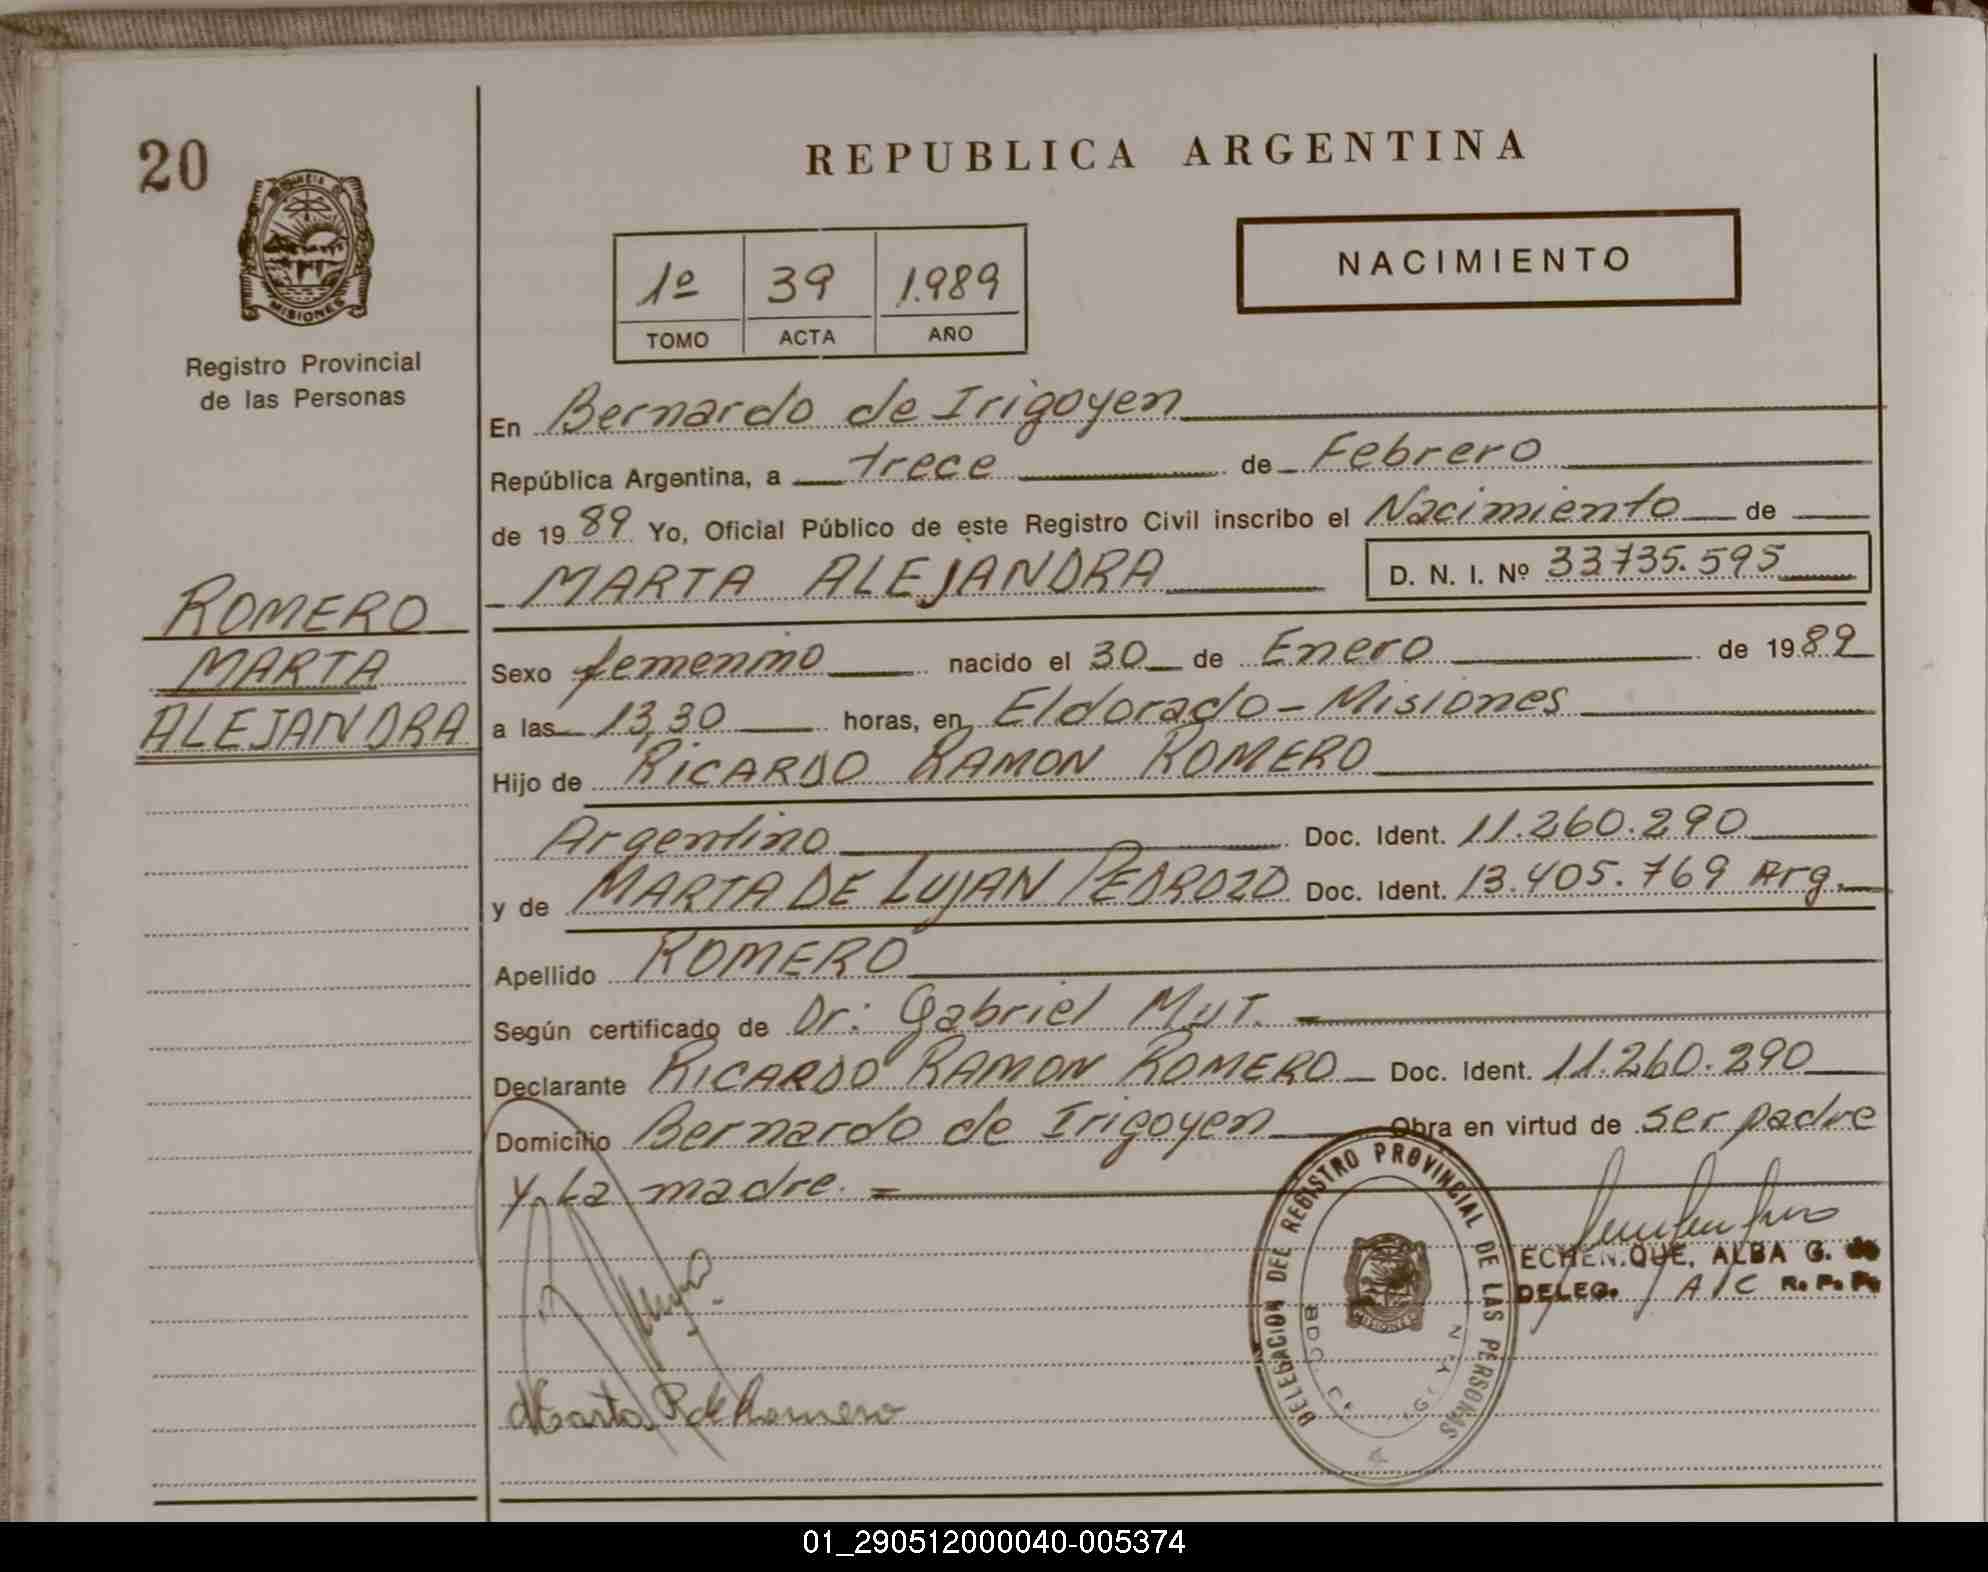 20
PROVINCIA DE
MISIONES
Registro Provincial
de las Personas
ROMERO
MARTA
ALEJANDRA
REPUBLICA ARGENTINA
1º 39 1.989
TOMO ACTA AÑO
NACIMIENTO
En Bernardo de Irigoyen
República Argentina, a trece de Febrero
de 1989 Yo, Oficial Público de este Registro Civil inscribo el Nacimiento de
MARTA ALEJANDRA D. N. I. Nº 33735.595
Sexo femenino nacido el 30 de Enero de 1989
a las 13,30 horas, en Eldorado - Misiones
Hijo de RICARDO RAMON ROMERO
Argentino Doc. Ident. 11.260.290
y de MARTA DE LUJAN PEDROZO Doc. Ident. 13.405.769 Arg.
Apellido ROMERO
Según certificado de Dr: Gabriel MUT.
Declarante RICARDO RAMON ROMERO Doc. Ident. 11.260.290
Domicilio Bernardo de Irigoyen Obra en virtud de ser padre
y La madre. =
DELEGACION DEL REGISTRO PROVINCIAL DE LAS PERSONAS
MISIONES
BDO. DE
ECHENIQUE, ALBA G. de
DELEG. A/C R. P. P.
Marta P. de Romero
01_290512000040-005374